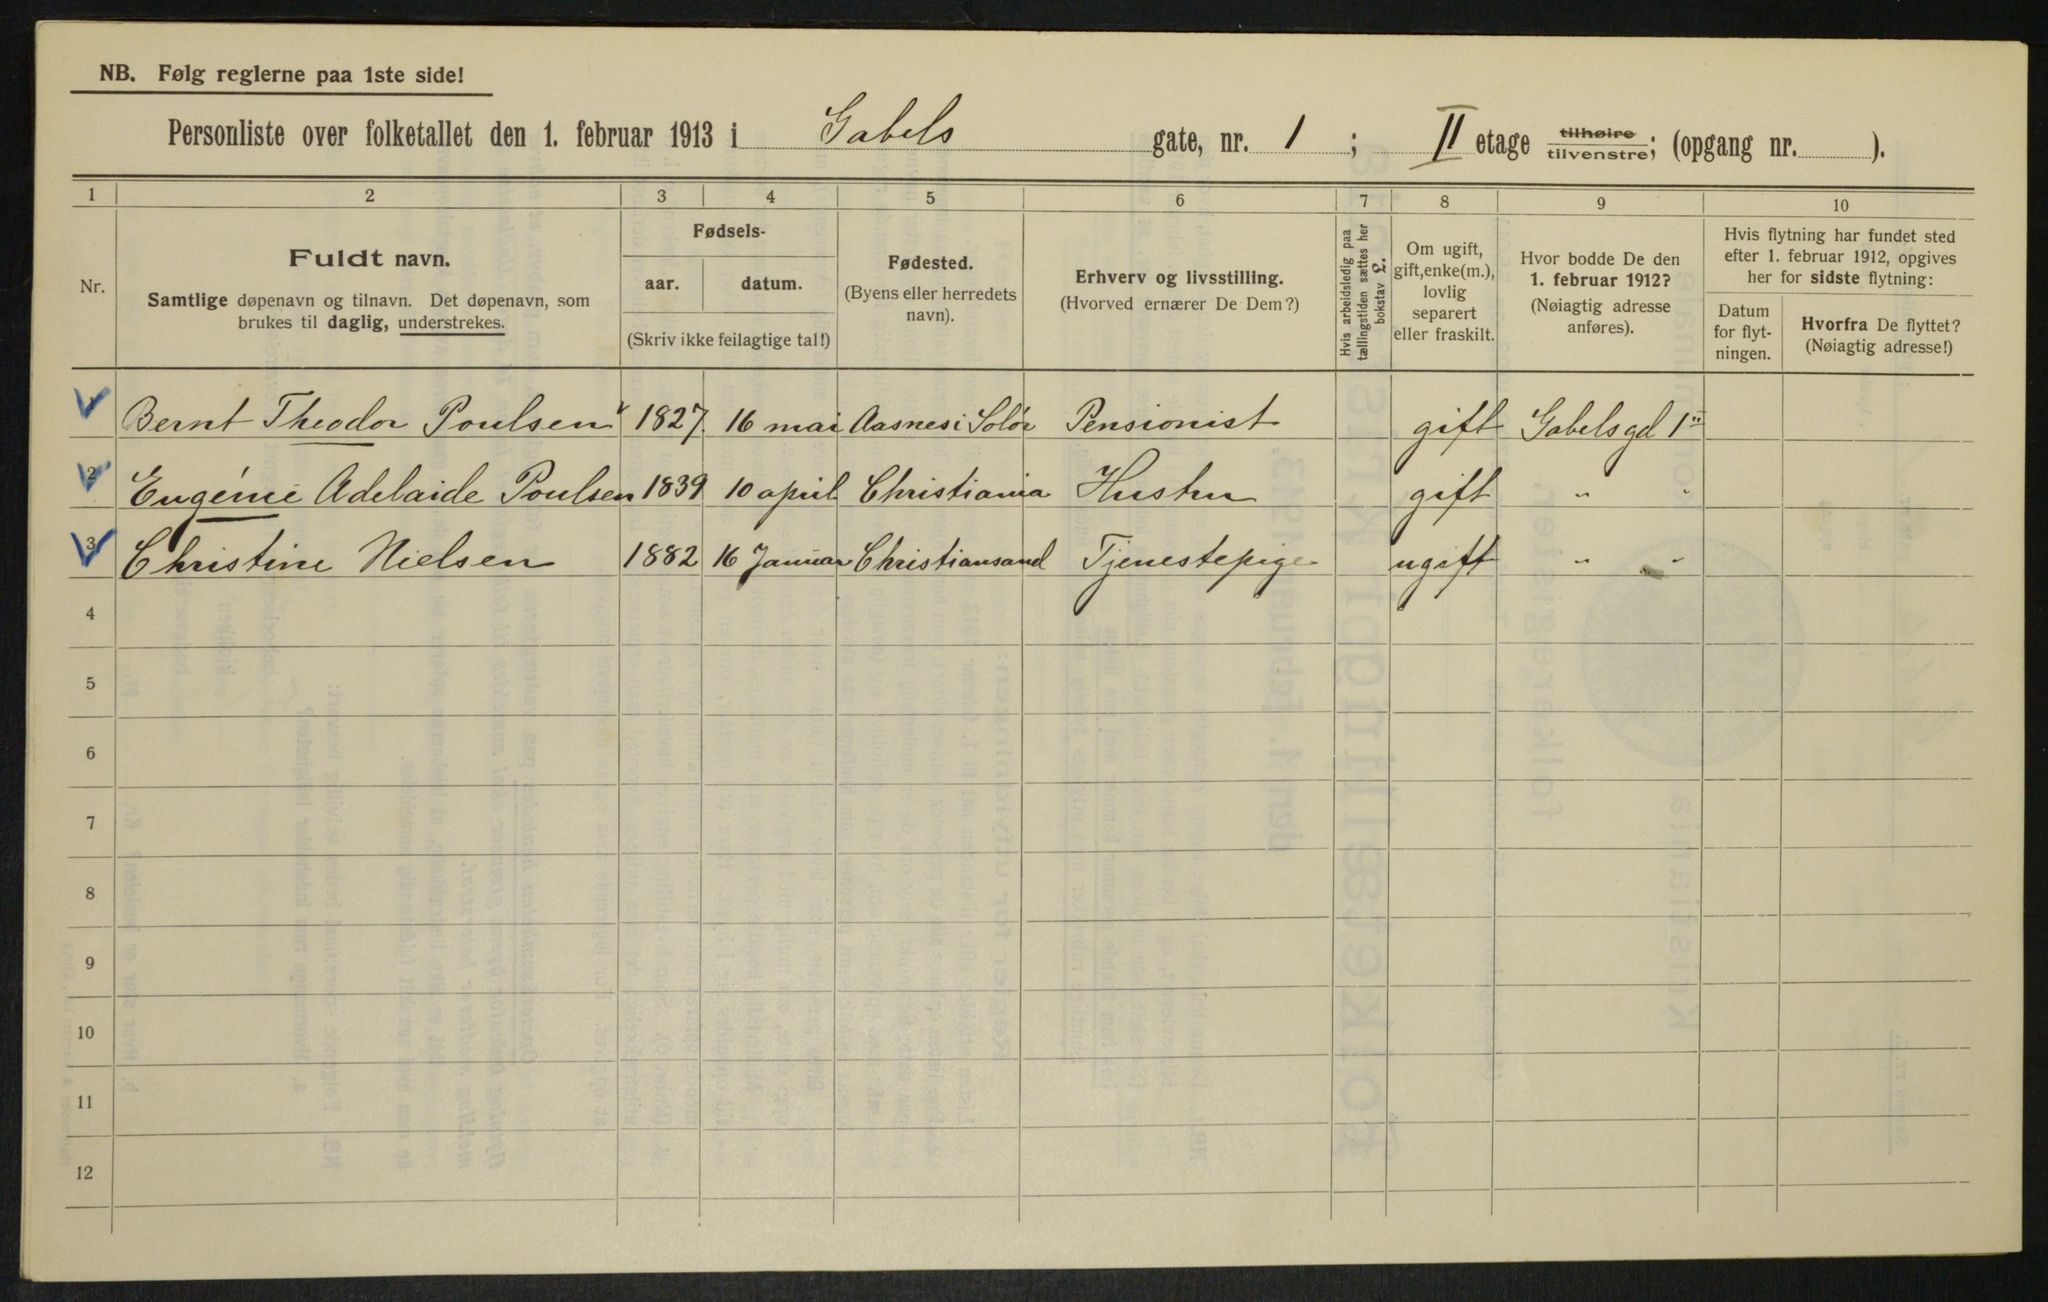 NB. Følg reglerne paa 1ste side!
Personliste over folketallet den 1. februar 1913 i Gabels gate, nr. 1; II etage tilhøire tilvenstre; (opgang nr. ).
1 2 3 4 5 6 7 8 9 10
Nr.
Fuldt navn.
Samtlige døpenavn og tilnavn. Det døpenavn, som
brukes til daglig, understrekes.
Fødsels-
aar. datum.
(Skriv ikke feilagtige tal!)
Fødested.
(Byens eller herredets
navn).
Erhverv og livsstilling.
(Hvorved ernærer De Dem?)
Hvis arbeidsledig paa
tællingstiden sættes her
bokstav L.
Om ugift,
gift, enke(m.),
lovlig
separert
eller fraskilt.
Hvor bodde De den
1. februar 1912?
(Nøiagtig adresse
anføres).
Hvis flytning har fundet sted
efter 1. februar 1912, opgives
her for sidste flytning:
Datum
for flyt-
ningen.
Hvorfra De flyttet?
(Nøiagtig adresse!)
1 Bernt Theodor Poulsen 1827. 16 mai Aasnes i Solør Pensionist gift Gabelsgd 1 II
2 Eugénie Adelaide Poulsen 1839 10 april Christiania Hustru gift " "
3 Christine Nielsen 1882 16 Januar Christiansand Tjenestepige ugift " "
4
5
6
7
8
9
10
11
12